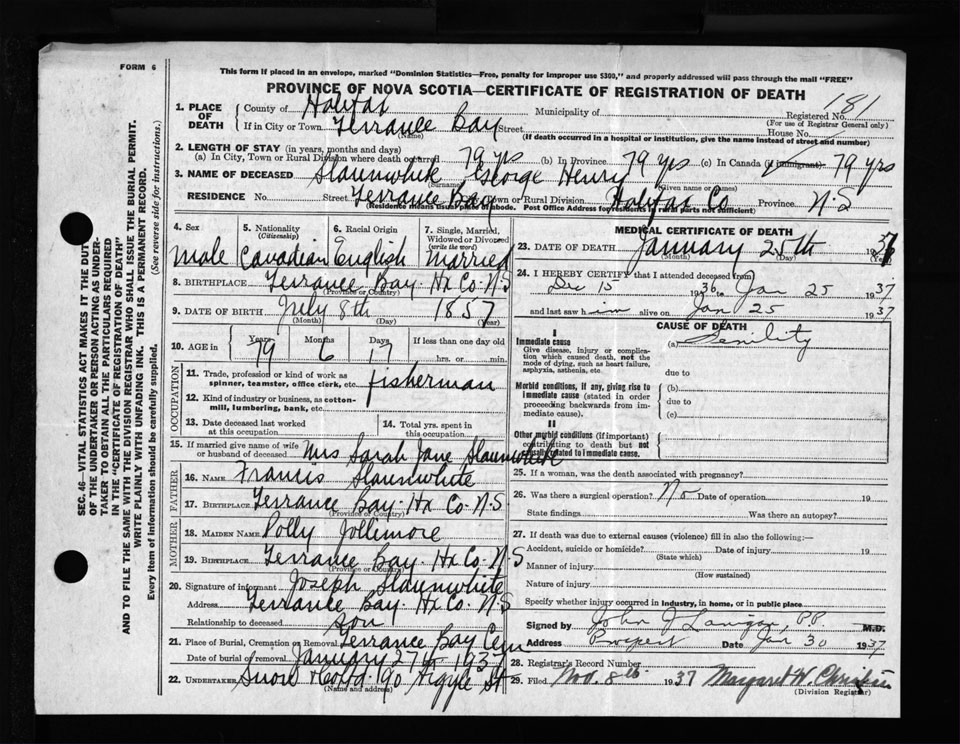 FORM 6
This form if placed in an envelope, marked "Dominion Statistics—Free, penalty for improper use $300," and properly addressed will pass through the mail "FREE"
PROVINCE OF NOVA SCOTIA—CERTIFICATE OF REGISTRATION OF DEATH
181
1. PLACE OF DEATH County of Halifax Municipality of Registered No.
(For use of Registrar General only)
If in City or Town Terrance Bay Street House No.
(Name) (If death occurred in a hospital or institution, give the name instead of street and number)
2. LENGTH OF STAY (in years, months and days)
(a) In City, Town or Rural Division where death occurred 79 yrs (b) In Province 79 yrs (c) In Canada (if immigrant) 79 yrs
3. NAME OF DECEASED Slaunwhite George Henry
(Surname) (Given name or names)
RESIDENCE No. Street Terrance Bay Town or Rural Division Halifax Co Province N.S
(Residence means usual place of abode. Post Office Address for residents in rural parts not sufficient)
4. Sex male
5. Nationality (Citizenship) Canadian
6. Racial Origin English
7. Single, Married, Widowed or Divorced (write the word) Married
8. BIRTHPLACE Terrance Bay. Hx Co. N.S
(Province or Country)
9. DATE OF BIRTH July 8th 1857
(Month) (Day) (Year)
10. AGE in Years 79 Months 6 Days 17 If less than one day old
hrs. or min.
OCCUPATION
11. Trade, profession or kind of work as spinner, teamster, office clerk, etc. fisherman
12. Kind of industry or business, as cotton-mill, lumbering, bank, etc.
13. Date deceased last worked at this occupation
14. Total yrs. spent in this occupation
15. If married give name of wife or husband of deceased Mrs Sarah Jane Slaunwhite
FATHER
16. NAME Francis Slaunwhite
17. BIRTHPLACE Terrance Bay. Hx Co. N.S.
(Province or Country)
MOTHER
18. MAIDEN NAME Polly Jollimore
19. BIRTHPLACE Terrance Bay. Hx Co. N S
(Province or Country)
20. Signature of informant Joseph Slaunwhite
Address Terrance Bay. Hx Co. N.S
Relationship to deceased son
21. Place of Burial, Cremation or Removal Terrance Bay Cem
Date of burial or removal January 27th 1937
22. UNDERTAKER Snow & Co Ltd. 90 Argyle St
(Name and address)
MEDICAL CERTIFICATE OF DEATH
23. DATE OF DEATH January 25th 1937
(Month) (Day) (Year)
24. I HEREBY CERTIFY that I attended deceased from
Dec 15 1936 to Jan 25 1937
and last saw him alive on Jan 25 1937
CAUSE OF DEATH
I
Immediate cause
Give disease, injury or complication which caused death, not the mode of dying, such as heart failure, asphyxia, asthenia, etc.
(a) Senility
due to
Morbid conditions, if any, giving rise to immediate cause (stated in order proceeding backwards from immediate cause).
(b)
due to
(c)
II
Other morbid conditions (if important) contributing to death but not causally related to immediate cause.
25. If a woman, was the death associated with pregnancy?
26. Was there a surgical operation? No Date of operation 19
State findings Was there an autopsy?
27. If death was due to external causes (violence) fill in also the following:—
Accident, suicide or homicide? Date of injury 19
(State which)
Manner of injury
(How sustained)
Nature of injury
Specify whether injury occurred in industry, in home, or in public place
Signed by John J Lanigan, P.P. M.D.
Address Prospect Date Jan 30 1937
28. Registrar's Record Number
29. Filed Nov. 8th 1937 Margaret W. Christian
(Division Registrar)
SEC. 46—VITAL STATISTICS ACT MAKES IT THE DUTY
OF THE UNDERTAKER OR PERSON ACTING AS UNDER-
TAKER TO OBTAIN ALL THE PARTICULARS REQUIRED
IN THE "CERTIFICATE OF REGISTRATION OF DEATH"
AND TO FILE THE SAME WITH THE DIVISION REGISTRAR WHO SHALL ISSUE THE BURIAL PERMIT.
WRITE PLAINLY WITH UNFADING INK. THIS IS A PERMANENT RECORD.
Every item of information should be carefully supplied. (See reverse side for instructions.)